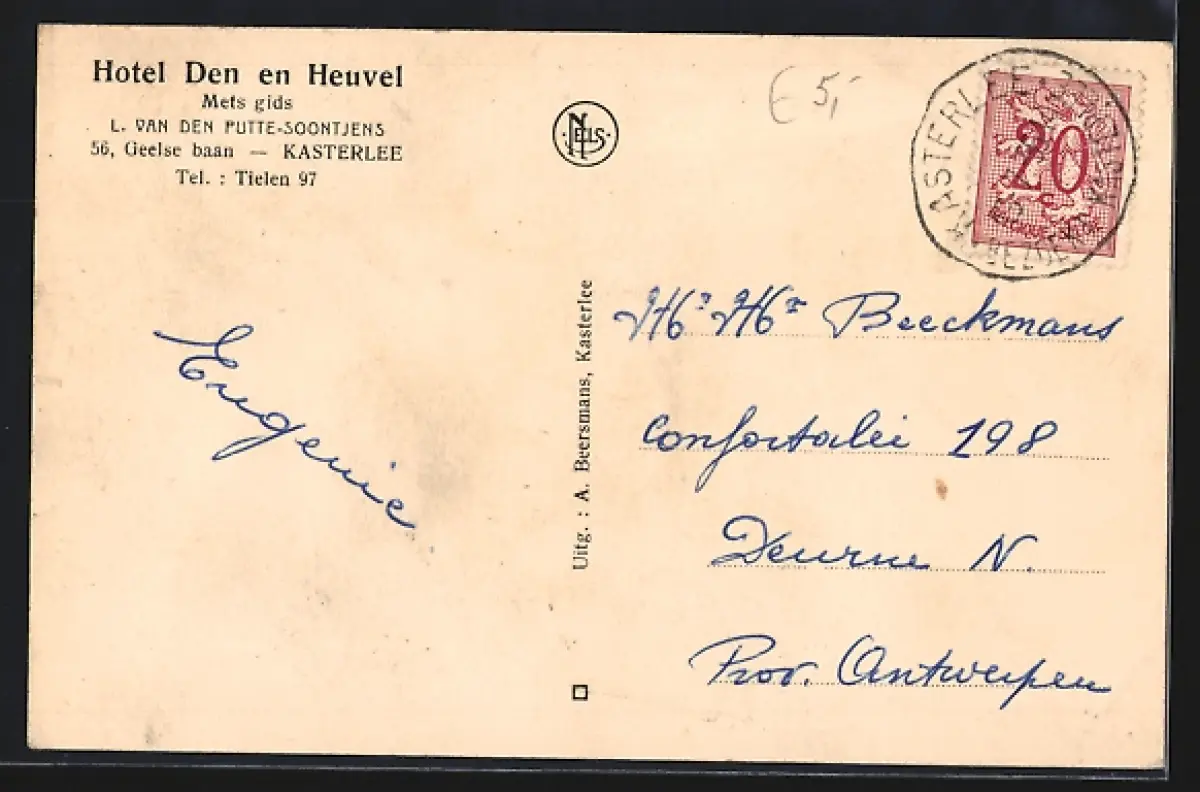 Hotel Den en Heuvel
Mets gids
L. VAN DEN PUTTE-SOONTJENS
56, Geelse baan — KASTERLEE
Tel. : Tielen 97
NELS
€ 5,-
KASTERLEE
BEZOEKT KASTERLEE
20 c
BELGIQUE-BELGIË
Eugenie
Uitg. : A. Beersmans, Kasterlee
Beeckmans
Confortalei 198
Deurne N.
Prov. Antwerpen